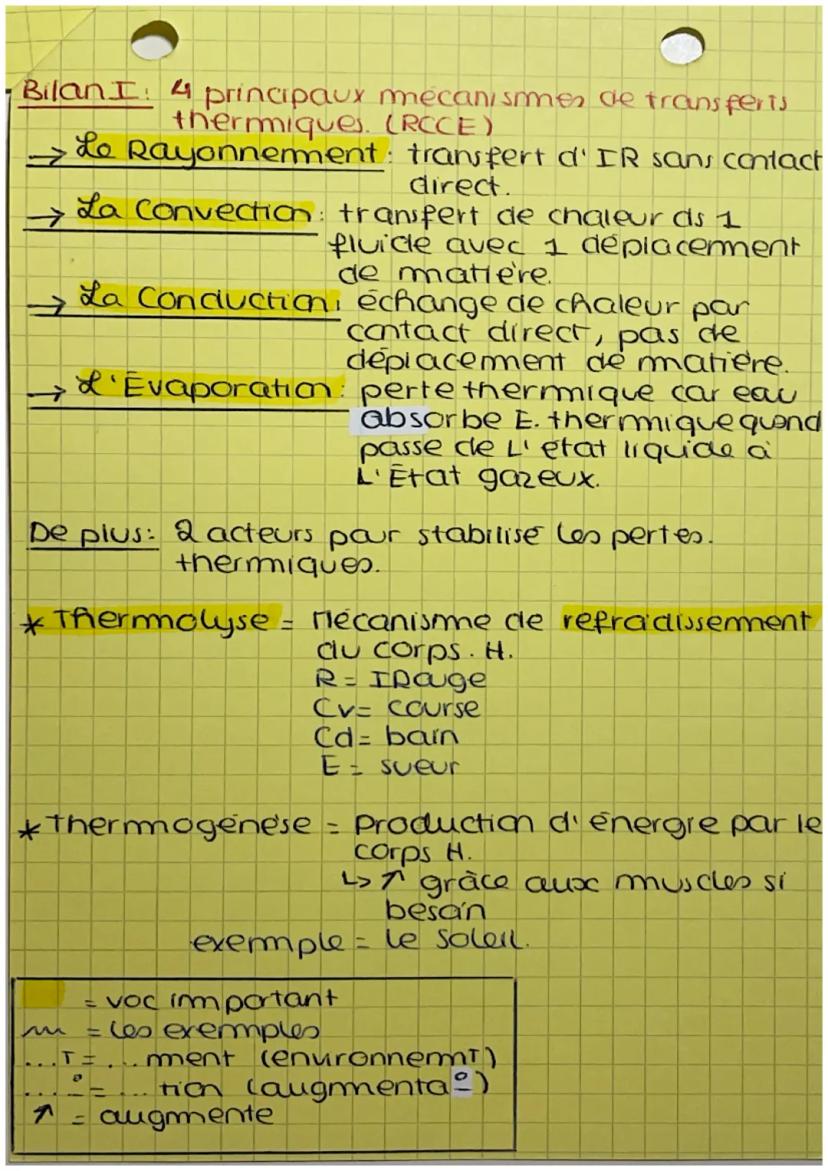 Bilan I: 4 principaux mécanismes de transferts
thermiques. (RCCE)
→ Le Rayonnement: transfert d'IR sans contact
direct.
→ La Convection: transfert de chaleur ds 1
fluide avec 1 déplacement
de matière.
→ La Conduction: échange de chaleur par
contact direct, pas de
déplacement de matière.
→ L'Évaporation: perte thermique car eau
absorbe E. thermique quand
passe de L'état liquide à
L'État gazeux.
De plus: 2 acteurs pour stabilisé les pertes.
thermiques.
* Thermolyse = Mécanisme de refroidissement
du corps. H.
R = IRouge
Cv = course
Cd = bain
E = sueur
* Thermogénèse = Production d'énergie par le
corps H.
↳ ↑ grâce aux muscles si
besoin
exemple = le soleil.
= voc important
= les exemples
...T = ...ment (environnemT)
...º = ...tion (augmentaº)
↑ = augmente